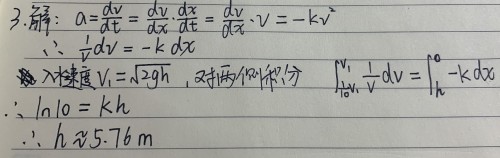 3.解: a = dv/dt = dv/dx · dx/dt = dv/dx · v = -kv²
∴ 1/v dv = -k dx
入水速度 V₁ = √2gh , 对两个同时积分 ∫_{10}^{V₁} 1/v dv = ∫_h^0 -k dx
∴ ln10 = kh
∴ h ≈ 5.76 m